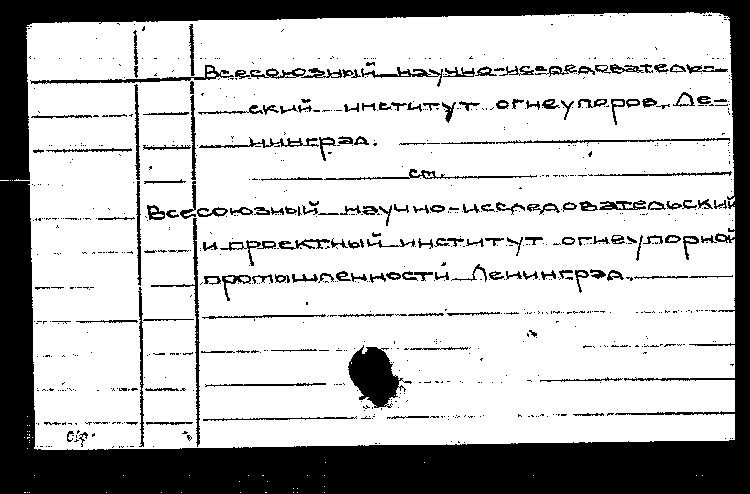 Всесоюзный научно-исследователь-
ский институт огнеупоров, Ле-
нинград.
см.
Всесоюзный научно-исследовательский
и проектный институт огнеупорной
промышленности Ленинград.